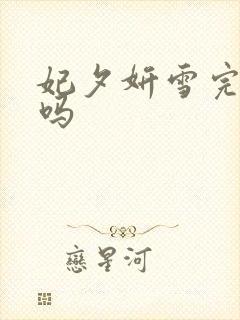 妃夕妍雪完
吗
戀星河